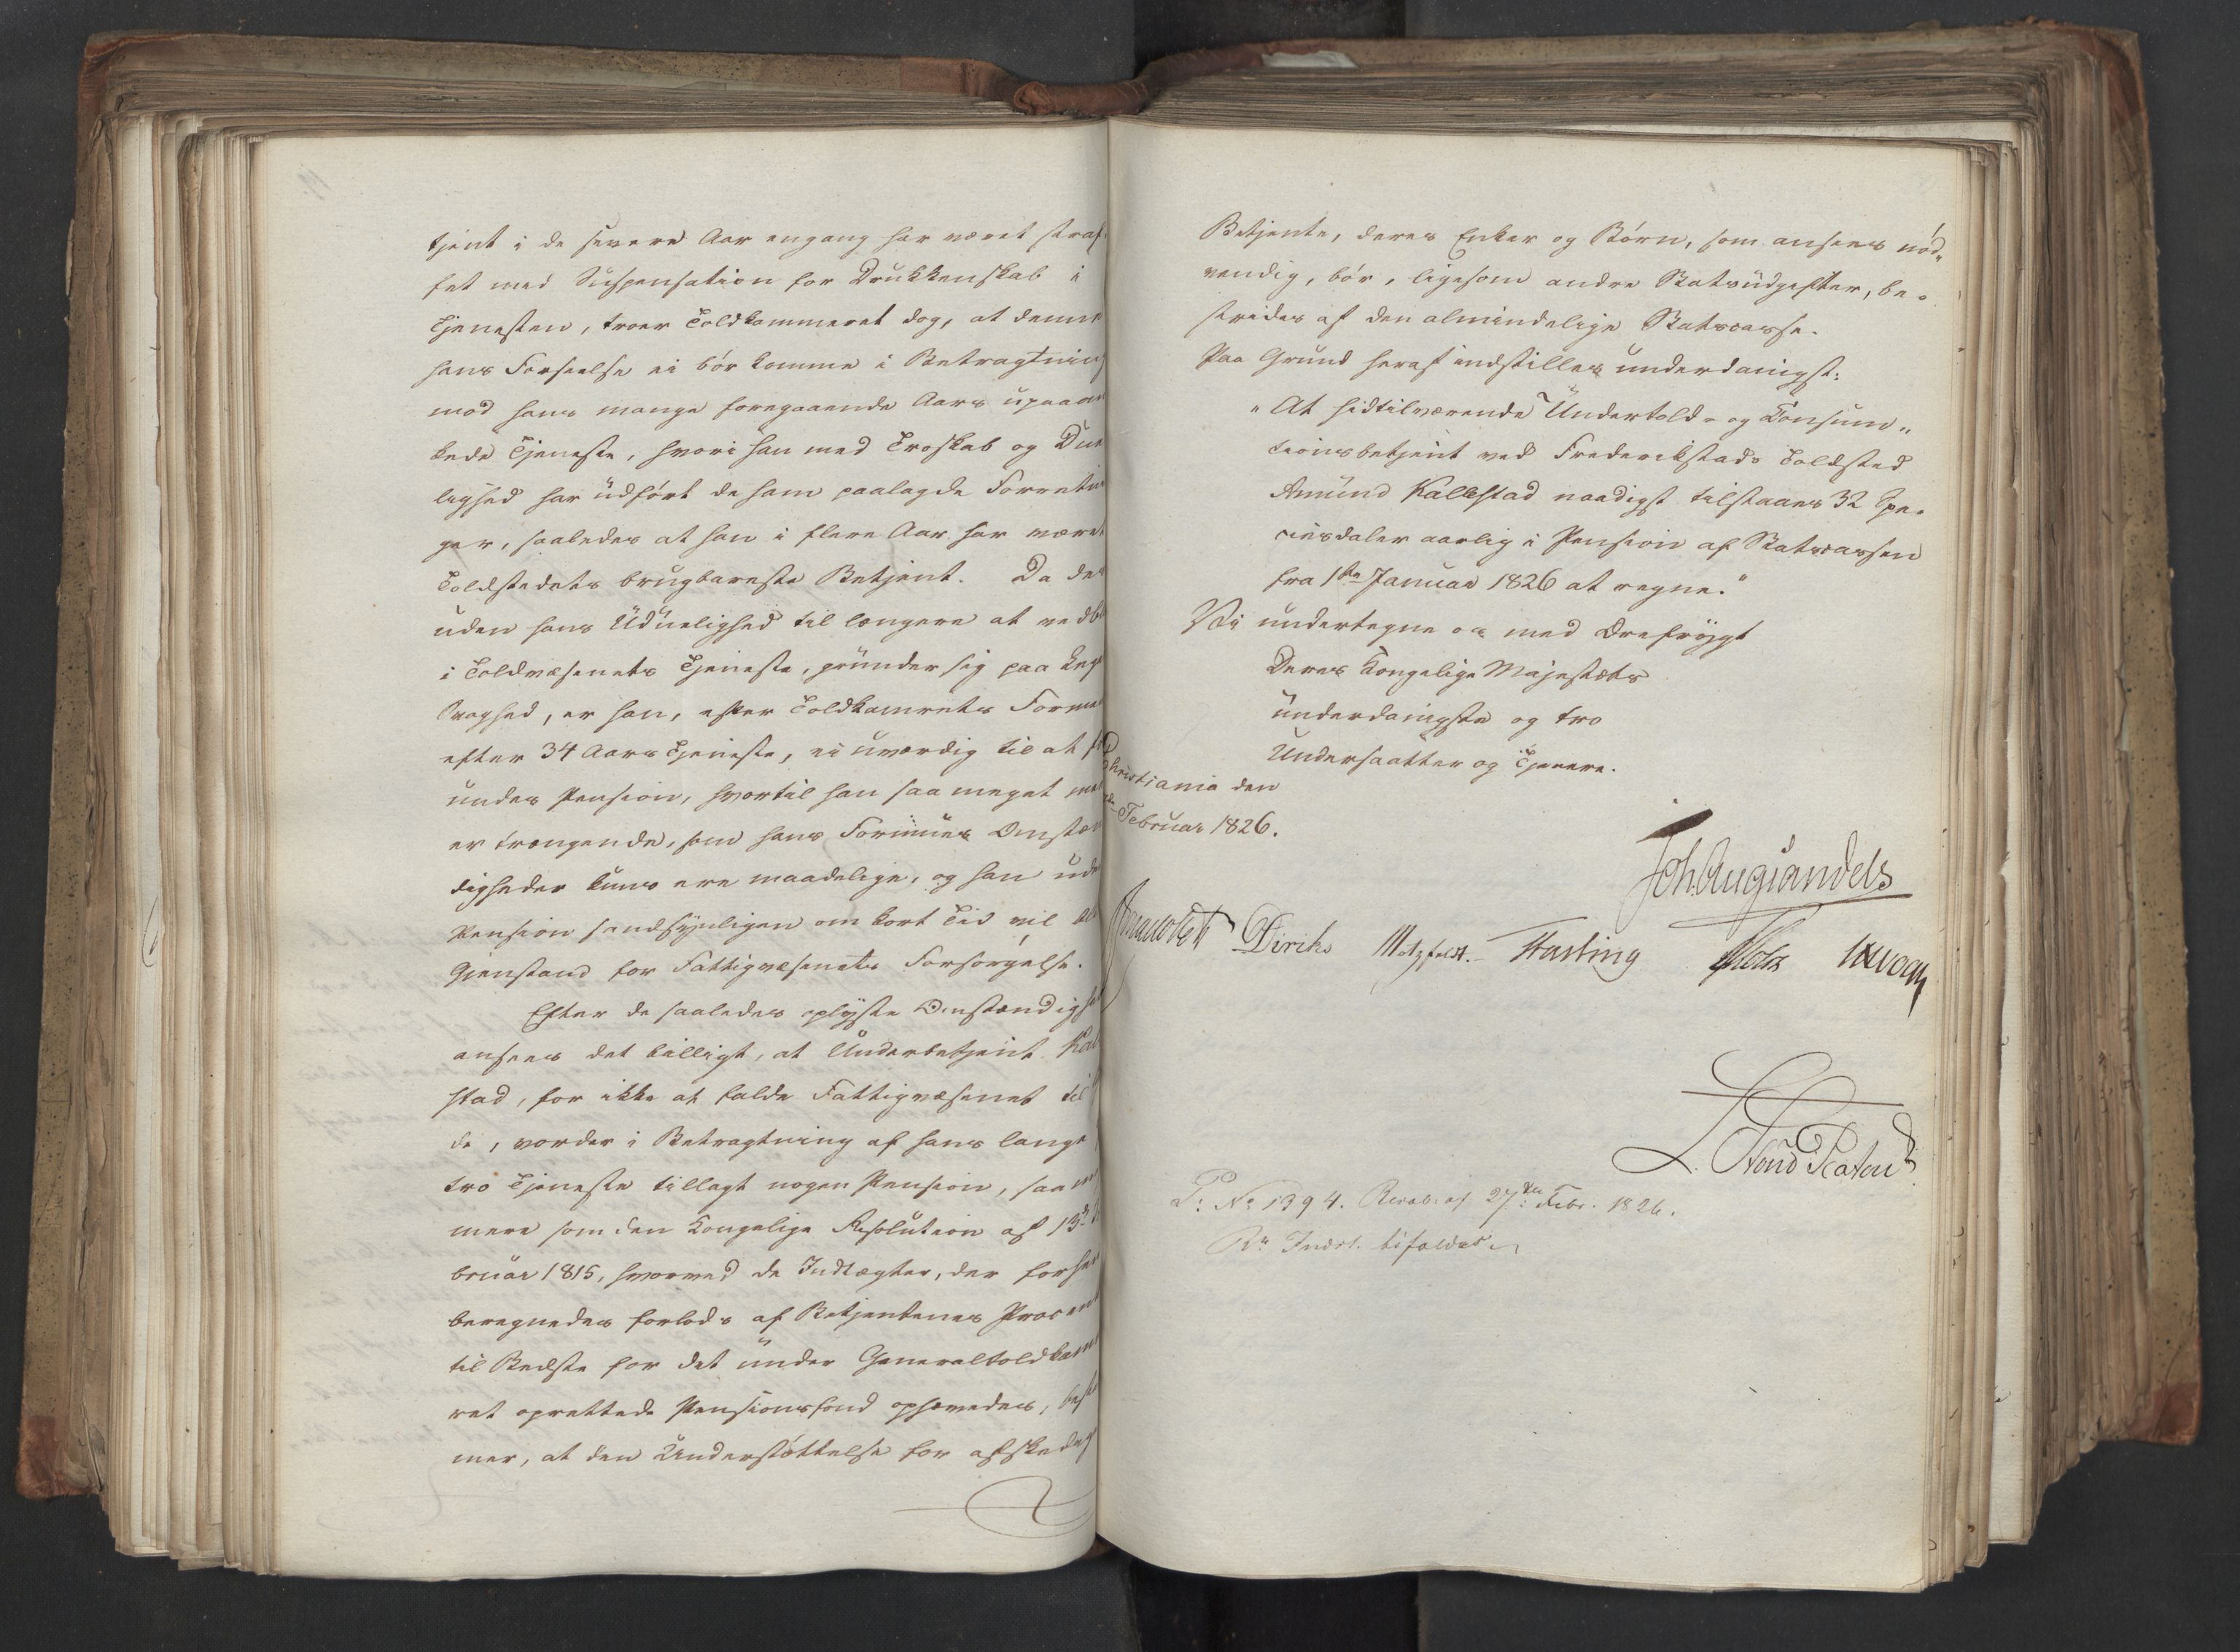 tjent i de senere Aar engang har været straf
fet med Suspensation for Drukkenskab i
Tjenesten, troer Toldkammeret dog, at denne
hans Forseelse ei bör komme i Betragtning
mod hans mange foregaaende Aars upaaan
kede Tjeneste, hvori han med Troskab og Due
lighed har udfört de ham paalagde Forretnin
ger, saaledes at han i flere Aar har været
Toldstedets brugbareste Betjent. Da des
uden hans Uduelighed til længere at vedbl
i Toldvæsenets Tjeneste, grunder sig paa Lege
Svaghed, er han, efter Toldkamrets Formee
efter 34 Aars Tjeneste, ei uværdig til at
undes Pension, hvortil han saa meget me
er trængende, som hans Formues Omstæn
digheder kuns ere maadelige, og han uden
Pension sandsynligen om kort Tid vil bli
Gjenstand for Fattigvæsenets Forsörgelse.
Efter de saaledes oplyste Omstændigh
ansees det billigt, at Underbetjent Kal
stad, for ikke at falde Fattigvæsenet til
de, vorder i Betragtning af hans lange
tro Tjeneste tillagt nogen Pension, saa
mere som den Kongelige Resolution af 13de
bruar 1815, hvorved de Indtægter, der forhen
beregnedes forlods af Betjentenes Procent
til Bedste for det under Generaltoldkam
ret oprettede Pensionsfond ophævedes, beste
mer, at den Understöttelse for afskedig
Betjente, deres Enker og Börn, som ansees nöd„
vendig, bör, ligesom andre Statsudgifter, be„
strides af den almindelige Statscasse.
Paa Grund heraf indstilles underdanigst:
„At hidtilværende Undertold- og Consum„
tionsbetjent ved Frederikstads Toldsted
Amund Kallestad naadigst tilstaaes 32 Spe„
ciesdaler aarlig i Pension af Statscassen
fra 1ste Januar 1826 at regne.“
Vi undertegne os med Ærefrygt
Deres Kongelige Majestæts
underdanigste og tro
Undersaatter og Tjenere.
Christiania den
Februar 1826.
Joh. Aug. Sandels
Diriks Motzfeldt. Fasting Holst
P: No 1394. Resol. af 27de Febr. 1826.
Rs Indst. bifaldes